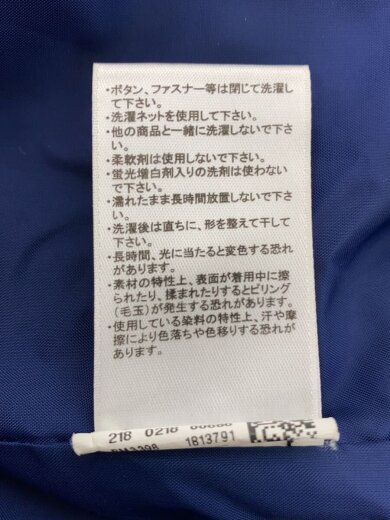 ・ボタン、ファスナー等は閉じて洗濯し
て下さい。
・洗濯ネットを使用して下さい。
・他の商品と一緒に洗濯しないで下さ
い。
・柔軟剤は使用しないで下さい。
・蛍光増白剤入りの洗剤は使わない
で下さい。
・濡れたまま長時間放置しないで下さ
い。
・洗濯後は直ちに、形を整えて干して
下さい。
・長時間、光に当たると変色する恐れ
があります。
・素材の特性上、表面が着用中に擦
られたり、揉まれたりするとピリング
(毛玉)が発生する恐れがあります。
・使用している染料の特性上、汗や摩
擦により色落ちや色移りする恐れが
あります。
218 0218
1813791